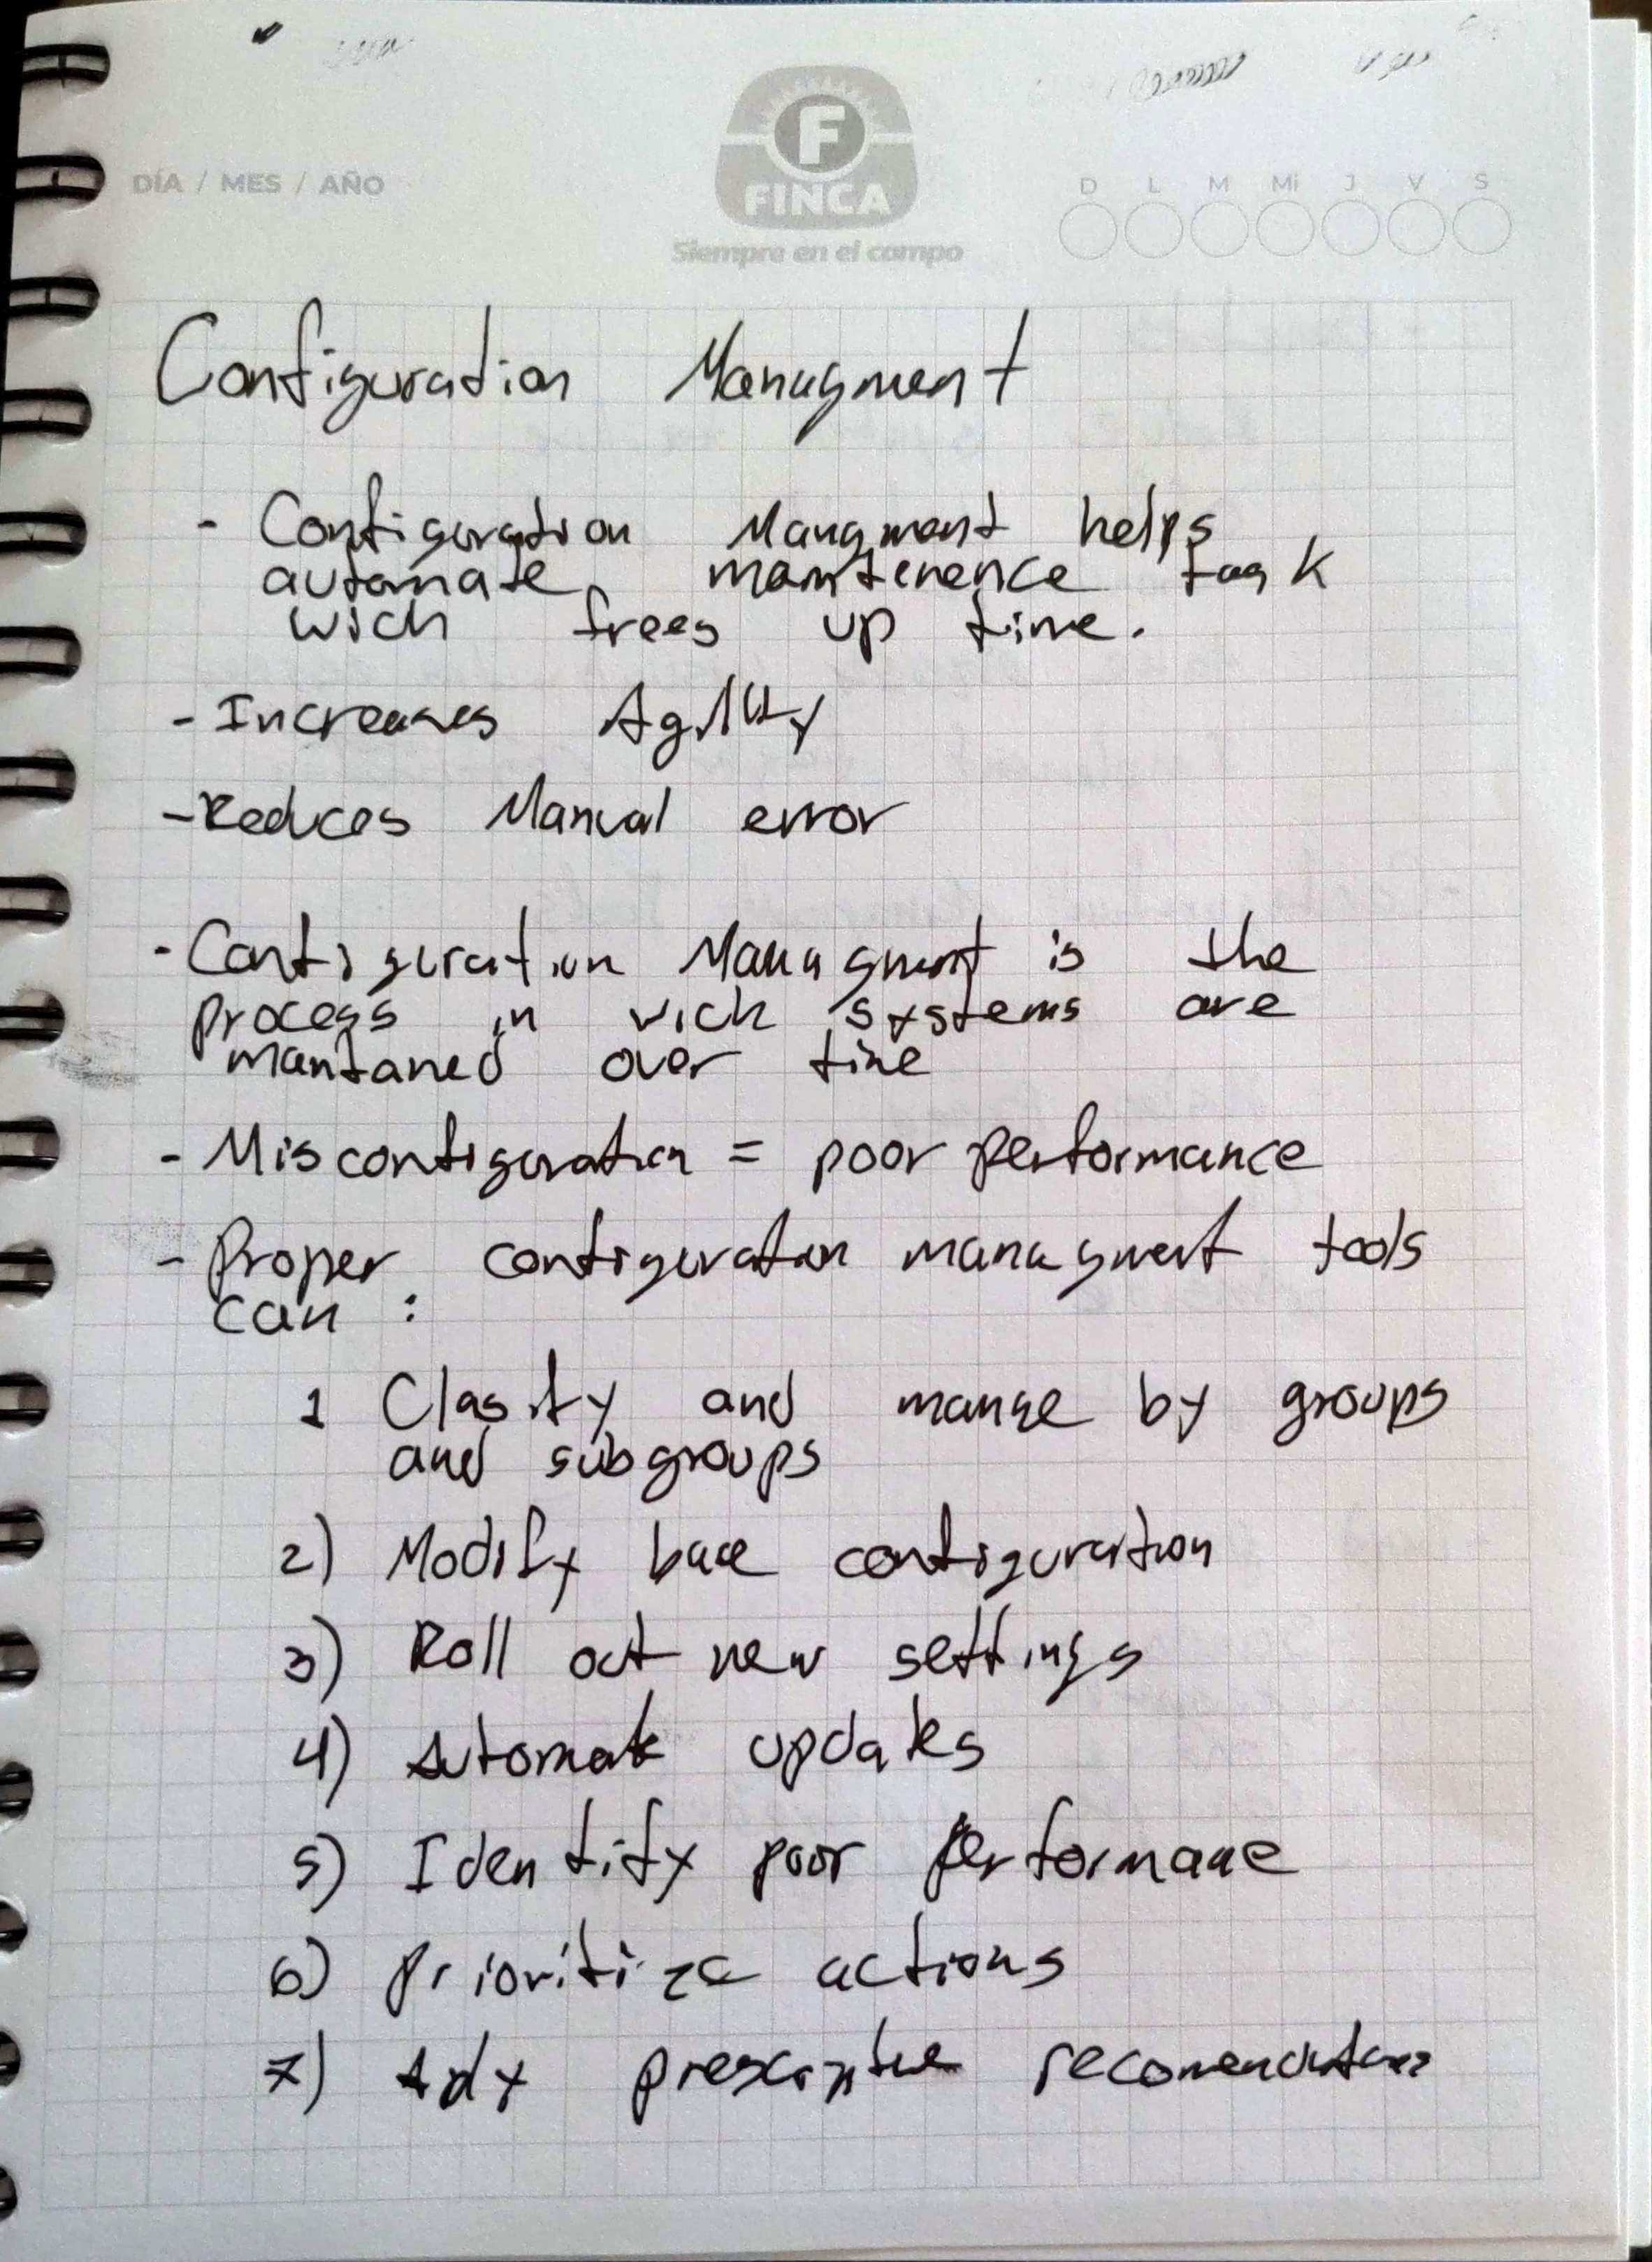 DÍA / MES / AÑO
F
FINCA
Siempre en el campo
D L M Mi J V S
Configuration Managment
- Configuration Mangment helps
automate maintenence task
wich frees up time.
- Increases Agility
- Reduces Manual error
- Configuration Managment is the
process in wich systems are
mantaned over time
- Misconfiguration = poor performance
- Proper configuration managment tools
can :
1 Clasify and mange by groups
and subgroups
2) Modify base configuration
3) Roll out new settings
4) Automate updates
5) Identify poor performance
6) Prioritize actions
7) prescriptive recomendations